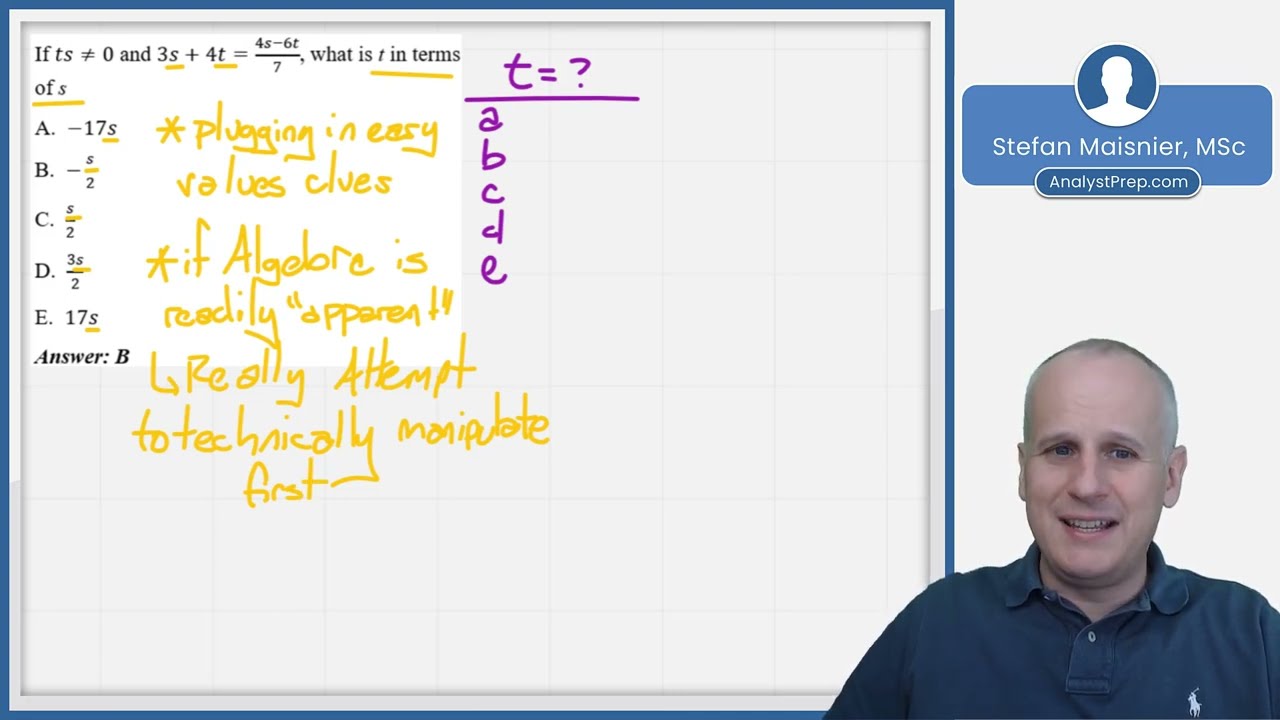 If ts ≠ 0 and 3s + 4t = \frac{4s−6t}{7}, what is t in terms
of s
A. −17s
B. −\frac{s}{2}
C. \frac{s}{2}
D. \frac{3s}{2}
E. 17s
Answer: B
* plugging in easy
values clues
* if Algebra is
readily "apparent"
↳ Really Attempt
to technically manipulate
first
t = ?
a
b
c
d
e
Stefan Maisnier, MSc
AnalystPrep.com